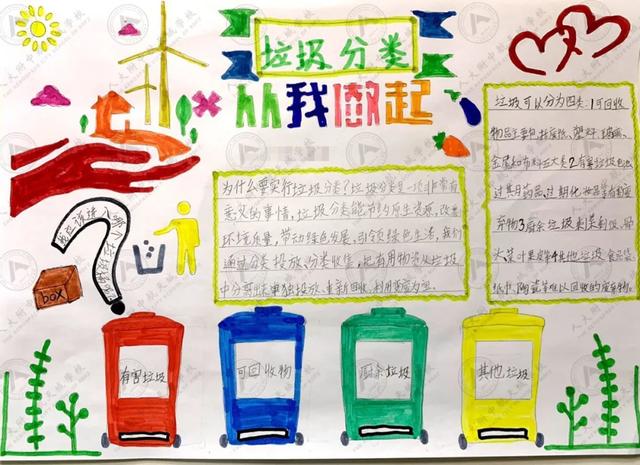 垃圾分类
从我做起
为什么要实行垃圾分类?垃圾分类是一项非常有
意义的事情,垃圾分类能节约原生资源,改善
环境质量,带动绿色发展,引领绿色生活,我们
通过分类投放、分类收集,把有用物资从垃圾
中分离出来单独投放,重新回收、利用变废为宝.
垃圾可以分为四类:1可回收
物主要包括废纸、塑料、玻璃、
金属和布料五大类2有害垃圾包括
过期药品、过期化妆品等有害
弃物3厨余垃圾剩菜剩饭、骨
大菜叶果皮等4其他垃圾食品袋
纸巾、陶瓷等难以回收的废弃物.
box
有害垃圾
可回收物
厨余垃圾
其他垃圾